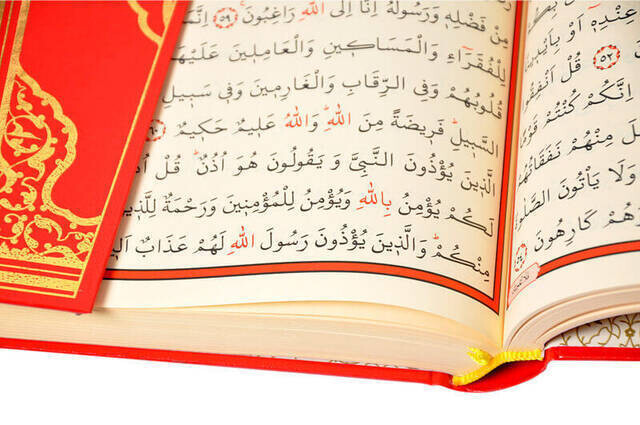 عِنْدِهٖ اَوْ بِاَيْد۪ينَا
﴿٥٢﴾ قُلْ اَنْفِقُوا
اِنَّكُمْ كُنْتُمْ قَوْمًا
مِنْهُمْ نَفَقَاتُهُمْ
وَلَا يَأْتُونَ الصَّلٰوةَ
هُمْ كَارِهُونَ ﴿٥٤﴾
مِنْ فَضْلِهٖ وَرَسُولُهُ اِنَّا اِلَى اللّٰهِ رَاغِبُونَ ﴿٥٩﴾ اِنَّمَا
لِلْفُقَرَٓاءِ وَالْمَسَاك۪ينِ وَالْعَامِل۪ينَ عَلَيْهَا
قُلُوبُهُمْ وَفِي الرِّقَابِ وَالْغَارِم۪ينَ وَف۪ي سَب۪يلِ
السَّب۪يلِ فَر۪يضَةً مِنَ اللّٰهِ وَاللّٰهُ عَل۪يمٌ حَك۪يمٌ ﴿٦٠﴾
الَّذ۪ينَ يُؤْذُونَ النَّبِيَّ وَيَقُولُونَ هُوَ اُذُنٌ قُلْ اُذُ
لَكُمْ يُؤْمِنُ بِاللّٰهِ وَيُؤْمِنُ لِلْمُؤْمِن۪ينَ وَرَحْمَةٌ لِلَّذ۪ينَ
مِنْكُمْ وَالَّذ۪ينَ يُؤْذُونَ رَسُولَ اللّٰهِ لَهُمْ عَذَابٌ اَل۪ي